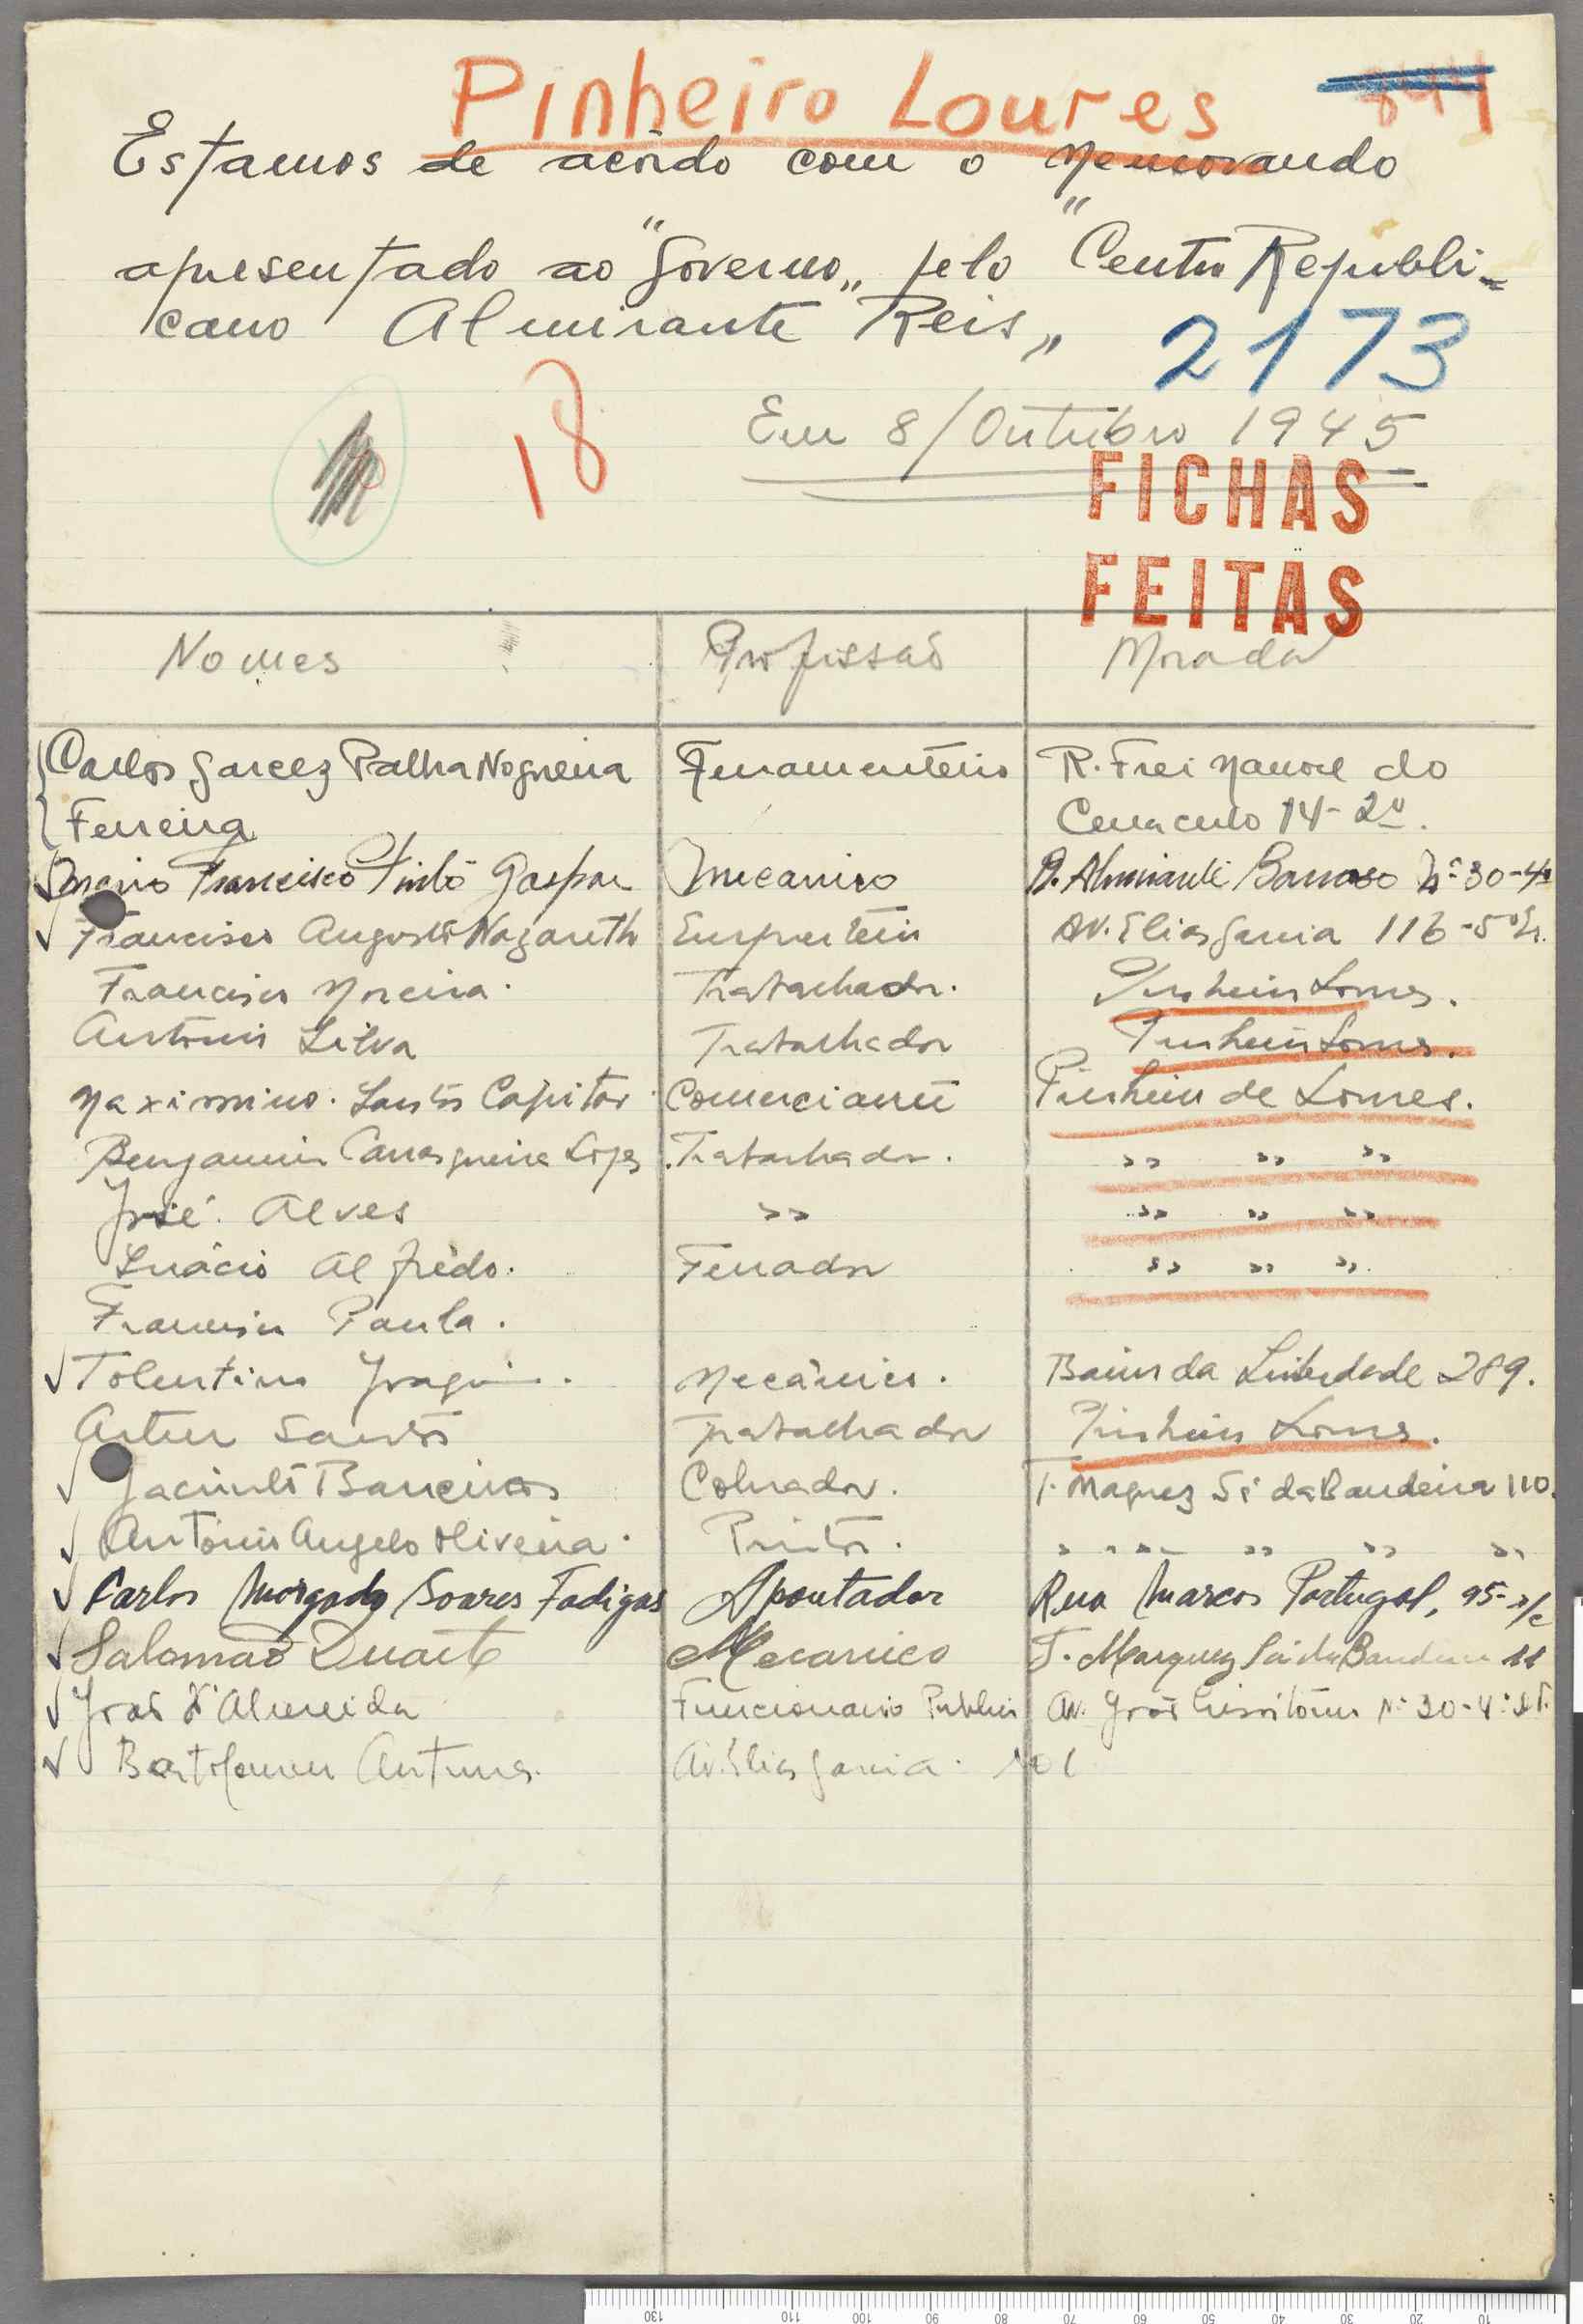 Pinheiro Loures
Estamos de acôrdo com o Memorando
apresentado ao "Governo„ pelo "Centro Republi-
cano Almirante Reis„
2173
18
Em 8/Outubro 1945
FICHAS
FEITAS
Nomes Profissão Morada
Carlos Garcez Palha Nogueira Ferramenteiro R. Frei Manoel do
Ferreira Cenaculo 14-2º.
Mario Francisco Pinto Gaspar Mecanico R. Almirante Barroso Nº 30-4º
Francisco Augusto Nazareth Empreiteiro Av. Elias Garcia 116-5º Es.
Francisco Moreira. Trabalhador. Pinheiro Loures.
Antonio Silva Trabalhador Pinheiro Loures.
Maximino. Santos Capitor Comerciante Pinheiro de Loures.
Benjamim Carrasqueira Lopes Trabalhador. " " "
José. Alves " " " "
Inácio Alfrêdo. Ferrador " " "
Francisco Paula.
Tolentino Joaquim. Mecânico. Bairro da Liberdade 289.
Artur Santos Trabalhador Pinheiro Loures.
Jacinto Barreiros Cobrador. T. Marquez Sá da Bandeira 110.
Antonio Angelo Oliveira. Pintor. " " " " "
Carlos Morgado Soares Fadigas Apontador Rua Marcos Portugal, 95-r/c
Salomão Duarte Mecanico T. Marquez Sá da Bandeira 11
João d'Almeida Funcionario Publico Av. João Crisóstomo Nº 30-4º Dt.
Bartolomeu Antunes. Av. Elias Garcia. 101